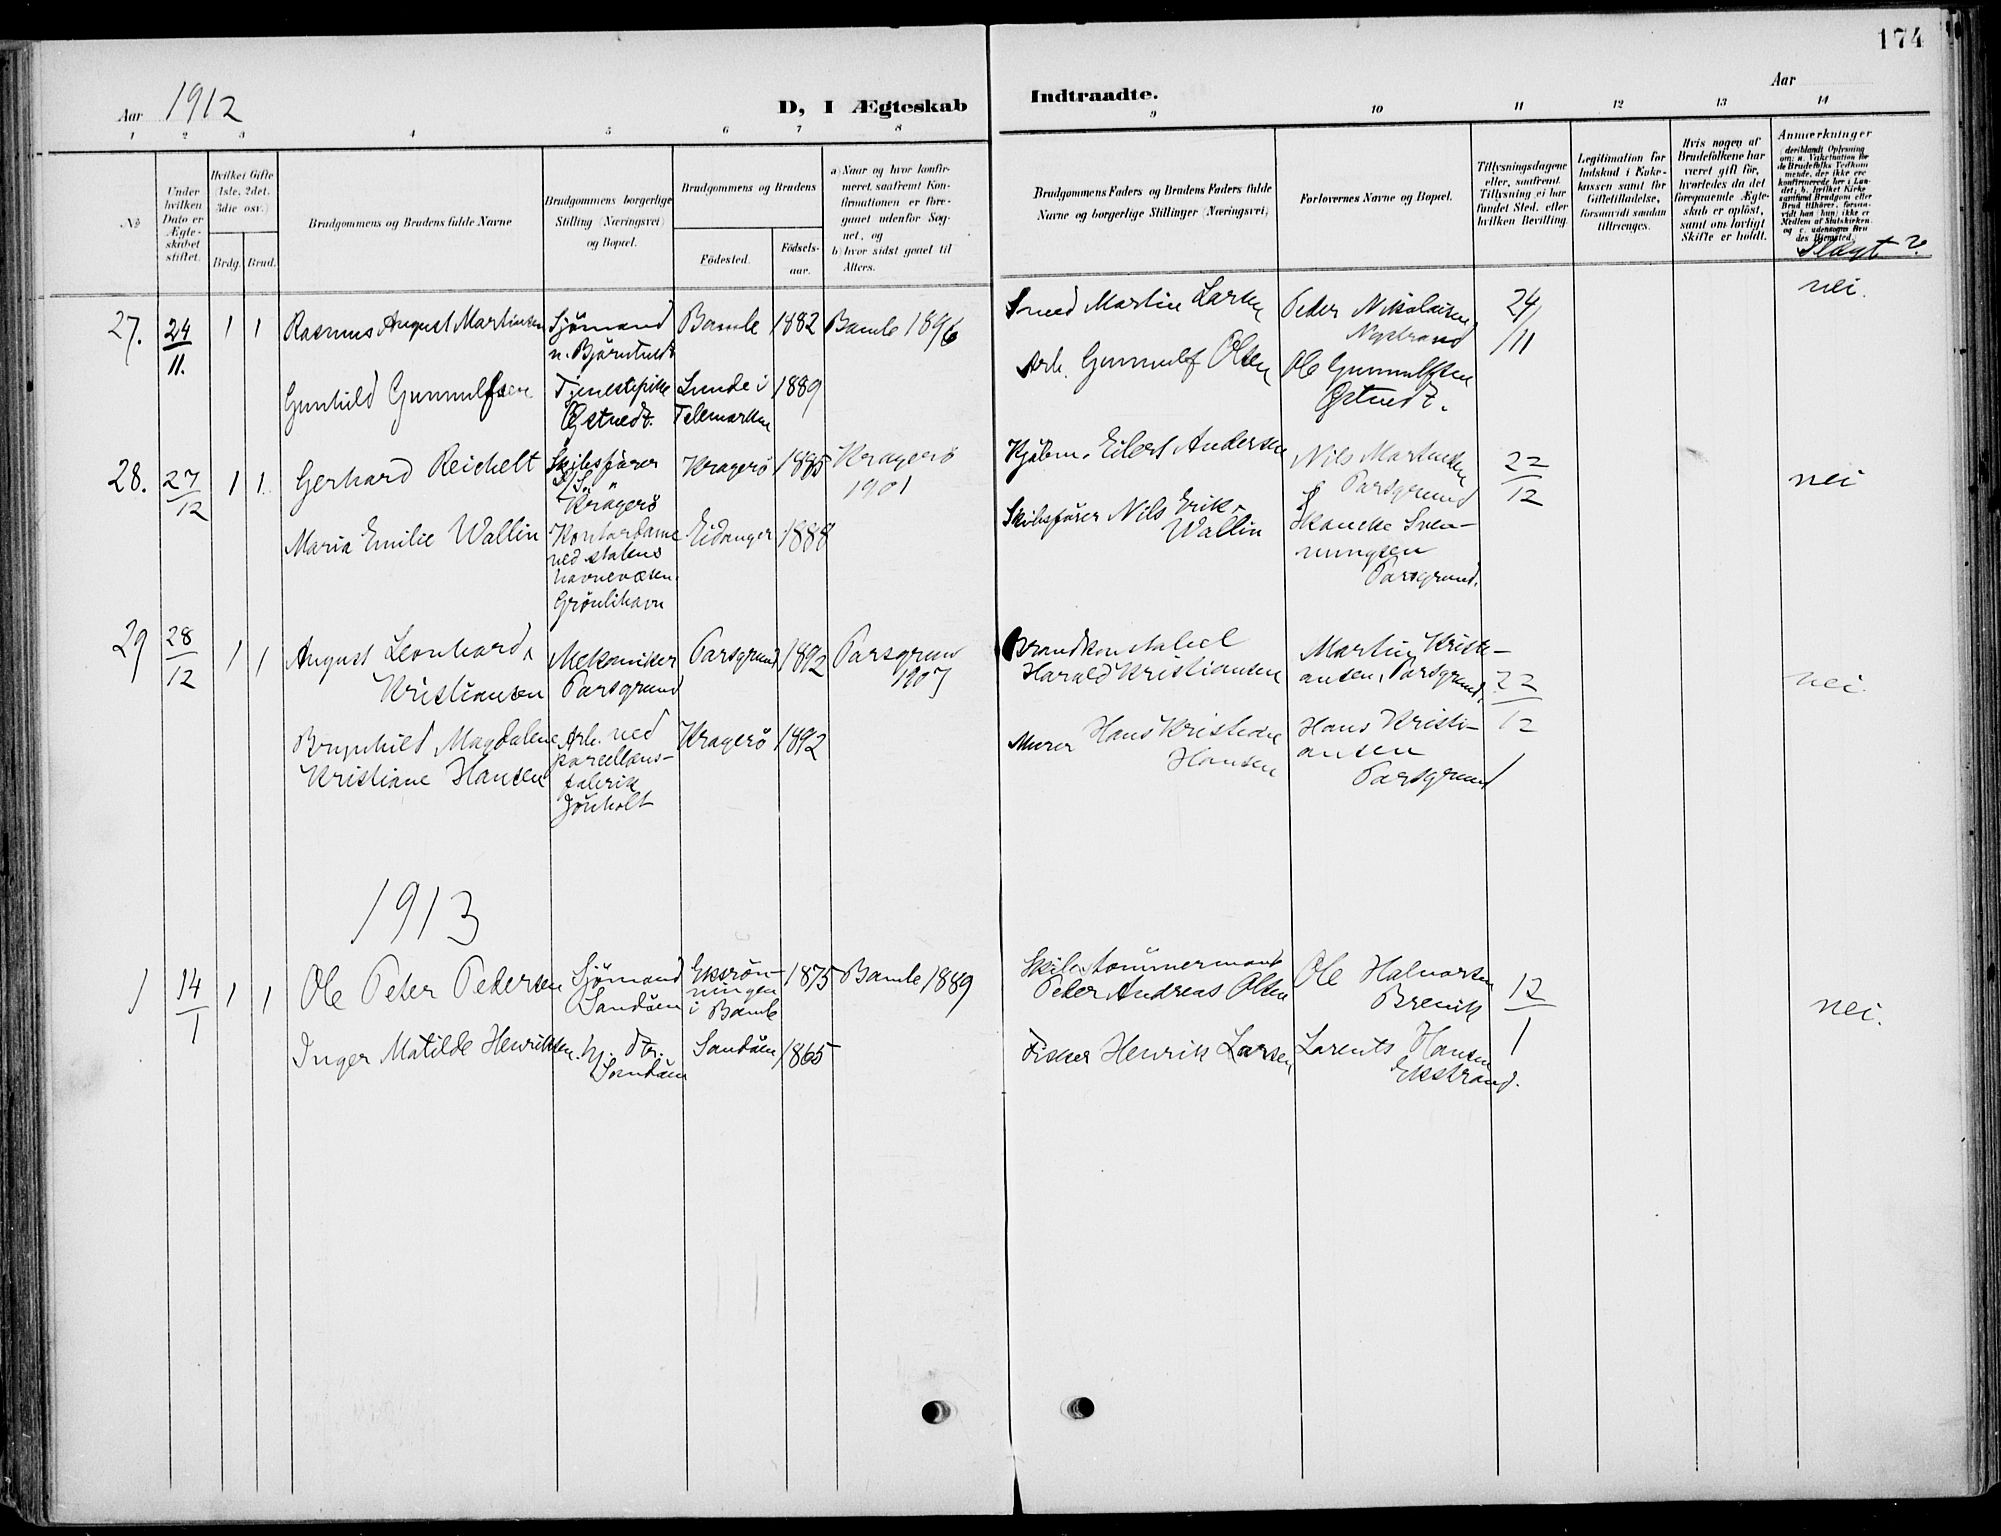 174
Aar 1912
D, I Ægteskab
Indtraadte.
Aar
1 2 3 4 5 6 7 8
9 10 11 12 13 14
No
Under hvilken Dato er Ægteskabet stiftet.
Hvilket Gifte (1ste, 2det, 3die osv.)
Brdg. Brud.
Brudgommens og Brudens fulde Navne
Brudgommens borgerlige Stilling (Næringsvei) og Bopæl.
Brudgommens og Brudens
Fødested.
Fødselsaar.
a) Naar og hvor konfirmeret, saafremt Konfirmationen er foregaaet udenfor Sognet, og
b) hvor sidst gaaet til Alters.
Brudgommens Faders og Brudens Faders fulde Navne og borgerlige Stillinger (Næringsvei)
Forlovernes Navne og Bopæl.
Tillysningsdagene eller, saafremt Tillysning ei har fundet Sted, efter hvilken Bevilling.
Legitimation for Indskud i Enkekassen samt for Giftetilladelse, forsaavidt saadan tiltrænges.
Hvis nogen af Brudefolkene har været gift før, hvorledes da det foregaaende Ægteskab er opløst, samt om lovligt Skifte er holdt.
Anmærkninger
Slægt?
27. 24/11. 1 1 Rasmus August Martinsen Sjömand Bamle 1882 Bamle 1896
n. Björntvedt
Smed Martin Larsen Peder Nikolaisen 24/11 nei.
Nystrand
Gunhild Gunnulfsen Tjenestepike Lunde i 1889
Østvedt. Telemarken
Arb. Gunnulf Olsen Ole Gunnulfsen
Østvedt.
28. 27/12 1 1. Gerhard Reichelt Skibsfører Kragerö 1885 Kragerö
Kragerö 1901
Kjøbm. Eilert Andersen Nils Martinsen 22/12 nei
Porsgrund
Maria Emilie Wallin Kontordame Eidanger 1888
ved statens
havnevæsen.
Grönlihavn
Skibsfører Nils Erik
Wallin
Svenningsen
Porsgrund.
29 28/12 1 1 August Leonhard Mekaniker Porsgrund 1892 Porsgrund
Kristiansen Porsgrund 1907
Brandkonstabel Martin Kristi-
Harald Kristiansen ansen, Porsgrund, 22/12 nei.
Brynhild Magdalene Arb. ved Kragerö 1892
Kristiane Hansen porcellæns-
fabrik
Murer Hans Kristian Hans Kristi-
Hansen ansen
Porsgrund
1913
1 14/1 1 1 Ole Peter Pedersen Sjömand 1875 Bamle 1889
Sandöen i Bamle
Skibstömmermand Ole Halvorsen 12/1 nei.
Peter Andreas Olsen Brevik
Inger Matilde Henriksen. hj. dtr. Sandöen 1865
Sandöen
Fisker Henrik Larsen Larents Hansen
Ekstrand.